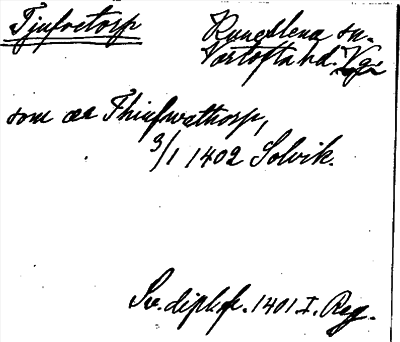 Tjufvetorp
Kungslena sn.
Vartofta hd. Vg.
som æa Thiufwathorp,
3/1 1402 Solvik.
Sv. diplof. 1401 I. Reg.